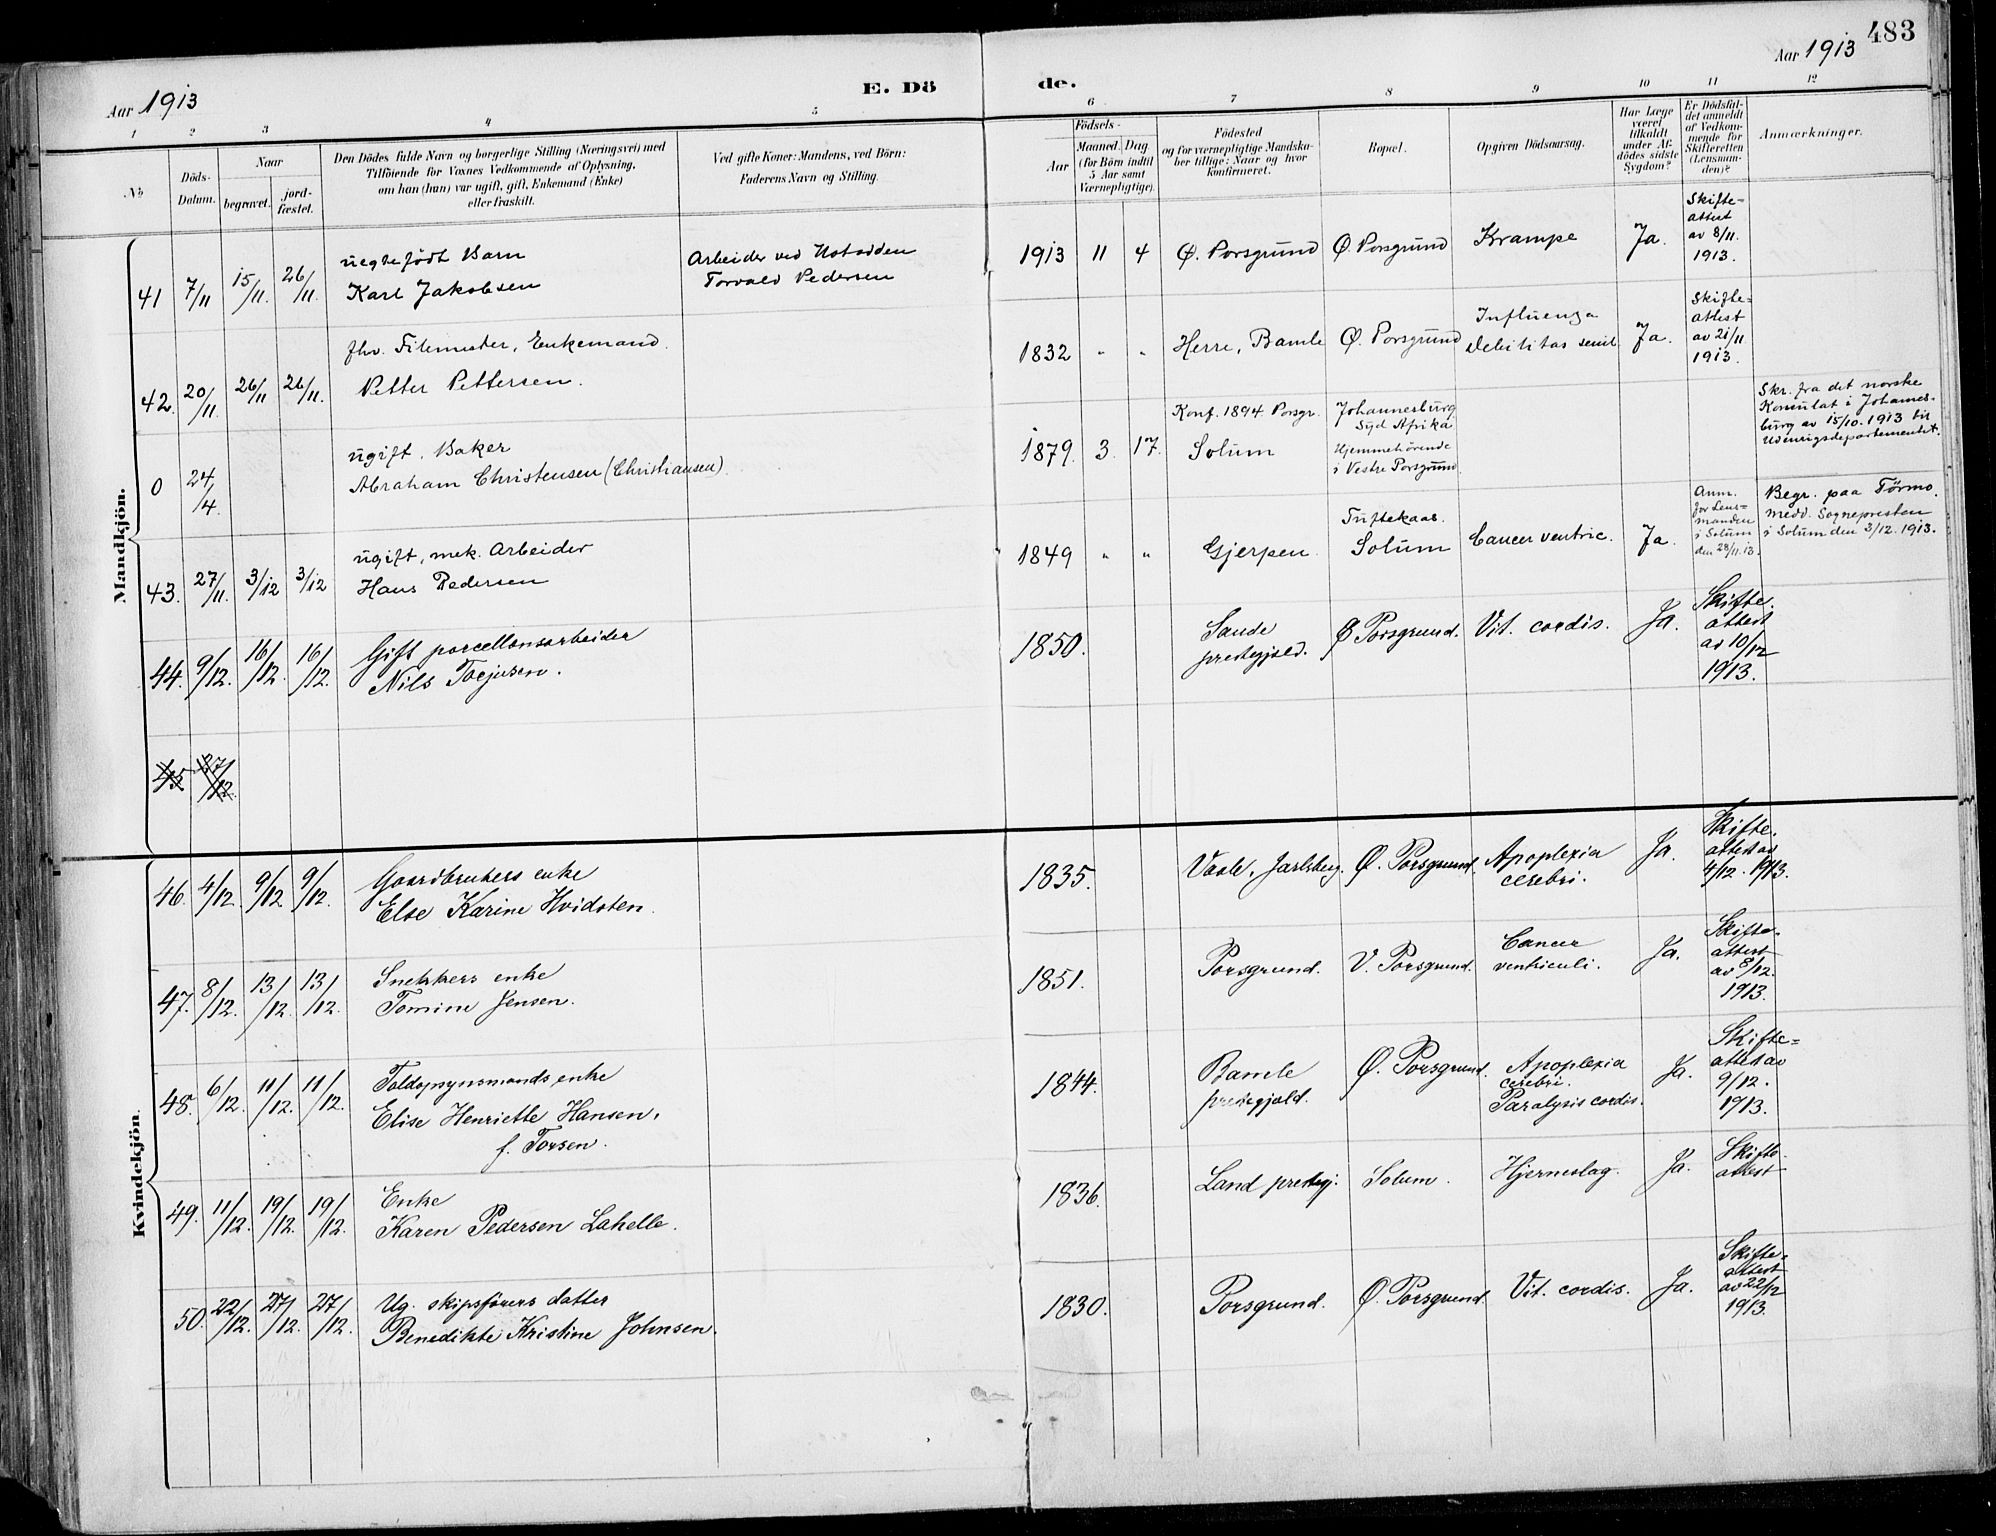 483
Aar 1913
E. Dö
de.
Aar 1913
1 2 3 4 5 6 7 8 9 10 11 12
No
Döds-
Datum.
Naar
begravet.
jord-
fæstet.
Den Dödes fulde Navn og borgerlige Stilling (Næringsvei) med
Tilföiende for Voxnes Vedkommende af Oplysning,
om han (hun) var ugift, gift, Enkemand (Enke)
eller fraskilt.
Ved gifte Koner: Mandens, ved Börn:
Faderens Navn og Stilling.
Födsels-
Aar
Maaned. Dag.
(for Börn indtil
5 Aar samt
Værnepligtige).
Födested
og for værnepligtige Mandska-
ber tillige: Naar og hvor
konfirmeret.
Bopæl.
Opgiven Dödsaarsag.
Har Læge
været
tilkaldt
under Af-
dödes sidste
Sygdom?
Er Dödsfal-
det anmeldt
af Vedkom-
mende for
Skifteretten
(Lensman-
den)?
Anmærkninger.
Mandkjön.
41 7/11 15/11. 26/11.
uegtefödt Barn
Karl Jakobsen
Arbeider ved Notodden
Torvald Pedersen
1913 11 4 Ø. Porsgrund Ø. Porsgrund Krampe Ja.
Skifte-
attest
av 8/11.
1913.
42. 20/11. 26/11 26/11.
fhv. Filemester, Enkemand.
Petter Pettersen.
1832 " " Herre, Bamle Ø. Porsgrund
Influenza
debilitas senil. Ja.
Skifte-
attest
av 21/11
1913.
0 24/4.
ugift, Baker
Abraham Christensen (Christiansen)
1879. 3. 17.
Konf. 1894. Porsgr.
Solum
Johannesburg
Syd Afrika
Hjemmehörende
i Vestre Porsgrund
Skr. fra det norske
Konsulat i Johannes-
burg av 15/10. 1913 til
Udenrigsdepartementet.
43. 27/11. 3/12 3/12
ugift, mek. Arbeider
Hans Pedersen
1849 " " Gjerpen.
Tuftekaas.
Solum
Cancer ventric. Ja.
Anm.
for Lens-
manden
i Solum
den 28/11.13.
Begr. paa Törmo.
medd. Sognepresten
i Solum den 3/12. 1913.
44. 9/12. 16/12. 16/12.
Gift porcellænsarbeider
Nils Torjusen.
1850.
Sande
prestegjeld.
Ø Porsgrund. Vit. cordis. Ja.
Skifte-
attest
av 10/12
1913.
45 27/12.
Kvindekjön.
46. 4/12. 9/12 9/12.
Gaardbrukers enke
Else Karine Hvidsten.
1835. Vaale, Jarlsberg. Ø. Porsgrund.
Apoplexia
cerebri.
Ja.
Skifte-
attest av
4/12. 1913.
47. 8/12. 13/12. 13/12.
Snekkers enke
Tomine Jensen.
1851. Porsgrund. V. Porsgrund.
Cancer
ventriculi.
Ja.
Skifte-
attest
av 8/12.
1913.
48. 6/12. 11/12. 11/12.
Toldopsynsmands enke
Elise Henriette Hansen,
f. Torsen.
1844.
Bamle
prestegjeld.
Ø. Porsgrund.
Apoplexia
cerebri.
Paralysis cordis.
Ja.
Skifte-
attest av
9/12.
1913.
49. 11/12. 19/12. 19/12.
Enke
Karen Pedersen Lahelle.
1836. Land presteg. Solum. Hjerneslag. Ja.
Skifte-
attest
50. 22/12. 27/12. 27/12.
Ug. skipsförers datter
Benedikte Kristine Johnsen.
1830. Porsgrund. Ø. Porsgrund. Vit. cordis. Ja.
Skifte-
attest
av 22/12
1913.